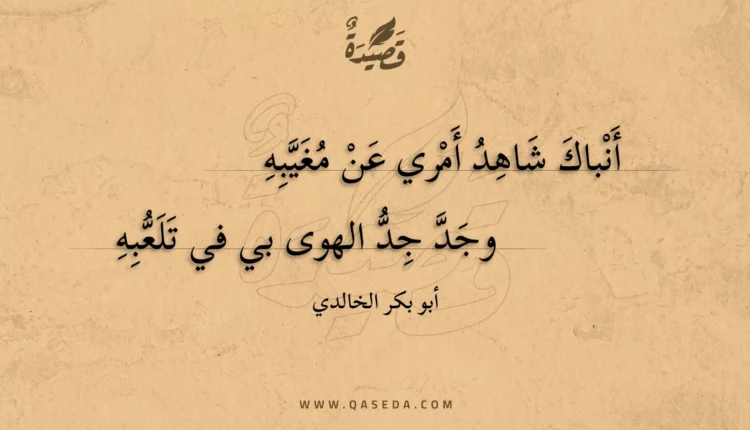 قَصِيْدَةٌ
أَنْباكَ شَاهِدُ أَمْري عَنْ مُغَيَّبِهِ
وجَدَّ جِدُّ الهوى بي في تَلَعُّبِهِ
أبو بكر الخالدي
WWW.QASEDA.COM